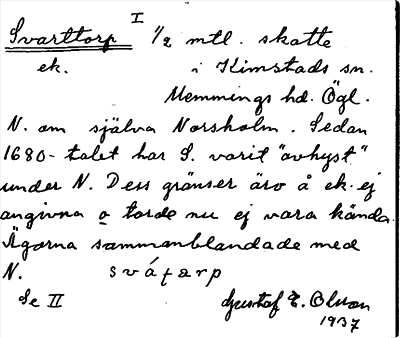 I
Svarttorp 1/2 mtl. skatte
ek. i Kimstads sn.
Memmings hd. Ögl.
N. om själva Norsholm. Sedan
1680-talet har S. varit "avhyst"
under N. Dess gränser äro å ek. ej
angivna o torde nu ej vara kända.
Ägorna sammanblandade med
N. sváʈarp
Se II Gustaf E. Olsson
1937